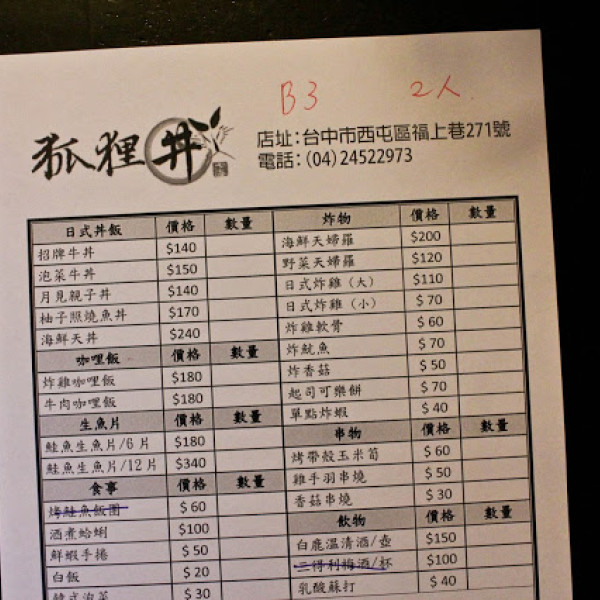 B3 2人
狐狸丼
店址:台中市西屯區福上巷271號
電話:(04)24522973
日式丼飯 價格 數量
招牌牛丼 $140
泡菜牛丼 $150
月見親子丼 $140
柚子照燒魚丼 $170
海鮮天丼 $240
咖哩飯 價格 數量
炸雞咖哩飯 $180
牛肉咖哩飯 $180
生魚片 價格 數量
鮭魚生魚片/6片 $180
鮭魚生魚片/12片 $340
食事 價格 數量
烤鮭魚飯團 $60
酒煮蛤蜊 $100
鮮蝦手捲 $50
白飯 $20
韓式泡菜 $30
炸物 價格 數量
海鮮天婦羅 $200
野菜天婦羅 $120
日式炸雞(大) $110
日式炸雞(小) $70
炸雞軟骨 $60
炸魷魚 $70
炸香菇 $50
起司可樂餅 $70
單點炸蝦 $40
串物 價格 數量
烤帶殼玉米筍 $60
雞手羽串燒 $50
香菇串燒 $30
飲物 價格 數量
白鹿溫清酒/壺 $150
三得利梅酒/杯 $100
乳酸蘇打 $40